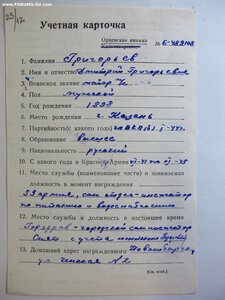 www.FORUMS-SU.com
Учетная карточка
Орденская книжка
Удостоверение № Б-489108
1. Фамилия Григорьев
2. Имя и отчество Дмитрий Григорьевич
3. Воинское звание майор
4. Пол мужской
5. Год рождения 1898
6. Место рождения г. Казань
7. Партийность (с какого года)
8. Образование высшее
9. Национальность русский
10. С какого года в Красной Армии
11. Место службы (наименование части) и занимаемая
должность в момент награждения
53 армия,
по питанию и водоснабжению
12. Место службы и должность в настоящее время
Горздрав – городской сан. инспектор
снят с учета
13. Домашний адрес награжденного г. Новосибирск,
ул. № 2
(См. н/об.)